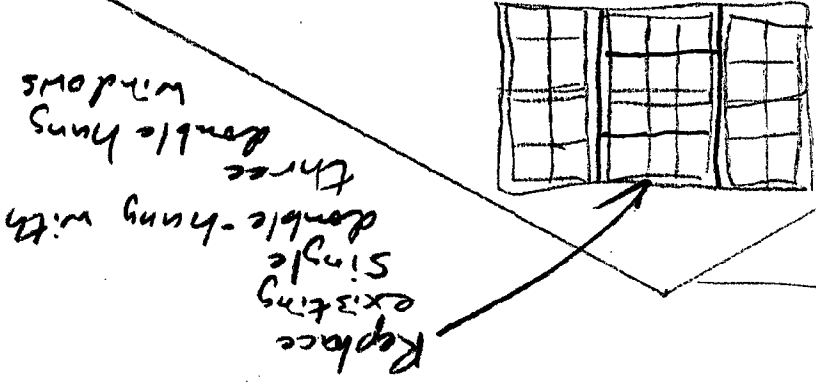 Replace
existing
single
double-hung with
three
double hung
windows